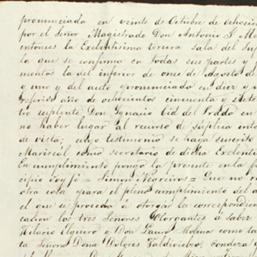 pronunciada en veinte de Octubre de ochocien
por el Señor Magistrado Don Antonio J. M
entonces la Excelentisima tercera sala del Sup
la que se confirma en todas sus partes y
mentos la del inferior de once de Agosto de
y uno y del auto pronunciado en diez y
propio año de ochocientos cincuenta y
tio suplente Don Ignacio Cid del Prado en
no haber lugar al recurso de súplica inter
de vista; cuyo testimonio se haga suscrito
Mariscal como secretario de dicha Excelent
En cumplimiento pongo la presente en la
copio doy fé = Simon Negreiros = Que no
otra cosa para el pleno cumplimiento del a
el que se proceda á otorgar la correspondien
cacion los tres Señores Otorgantes á saber
Hilario Elguero y Don Lauro Molina como
ta Señora Doña Dolores Valdivielso